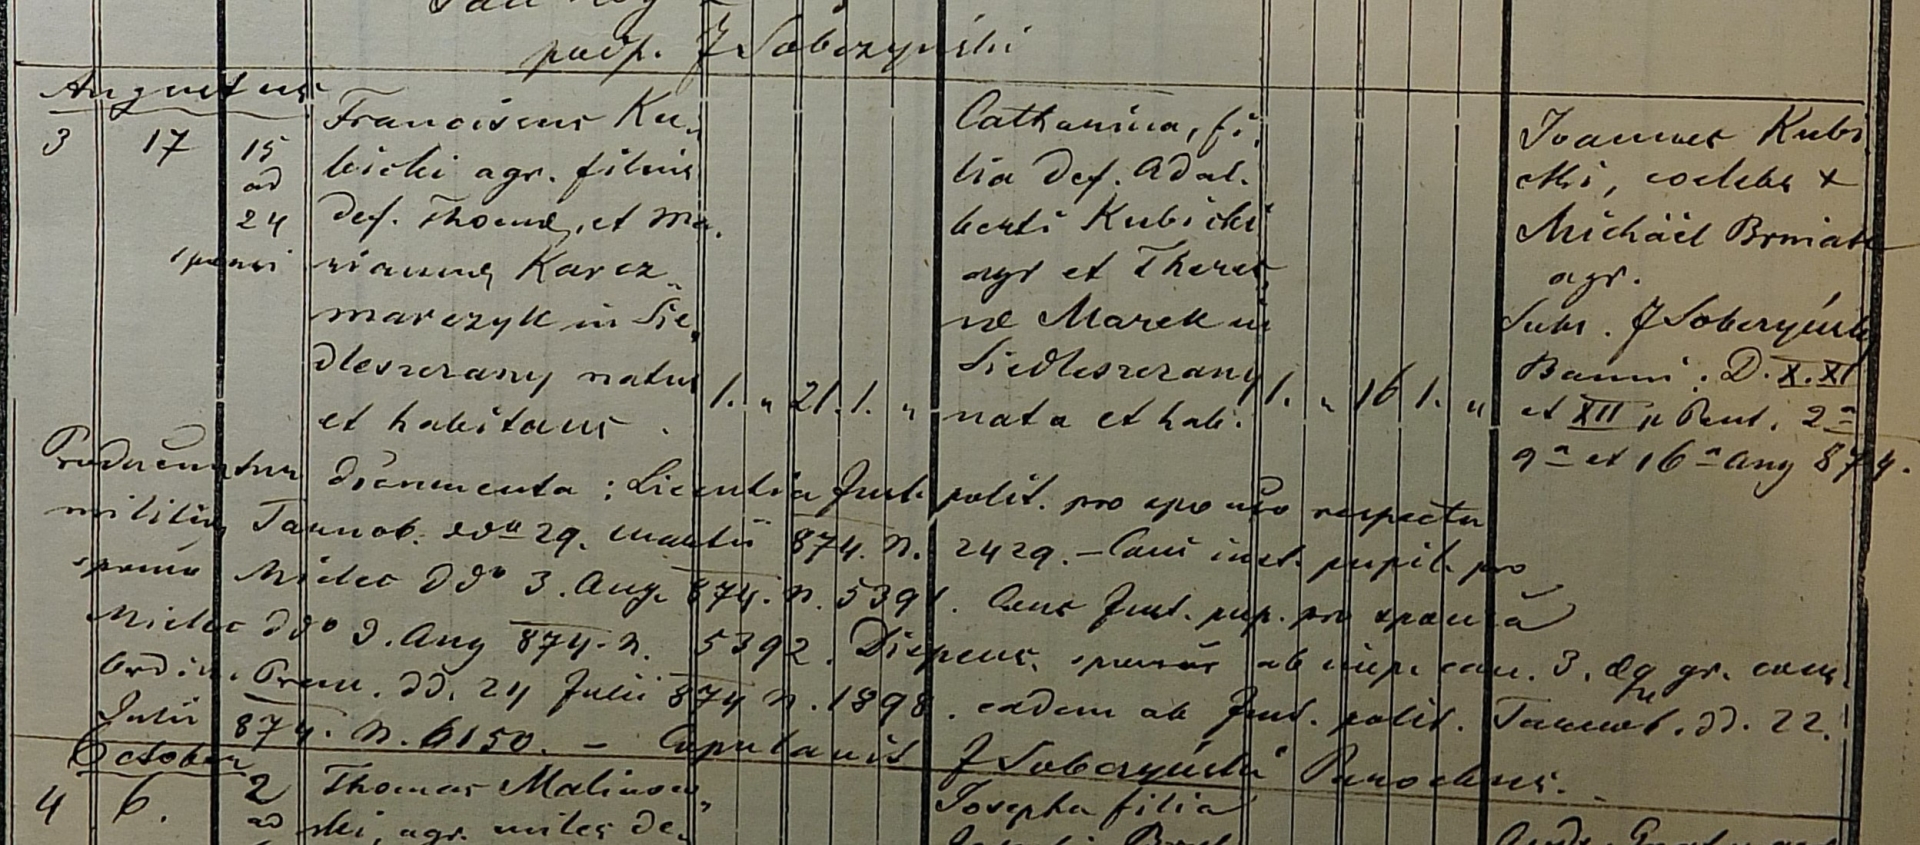 podp. J Sobczyński
Augustus
3 17 15 ad 24 sponsi
Franciscus Ku-
bicki agr. filius
def. Thomæ, et Ma-
riannæ Karcz-
marczyk in Sie-
dleszczany natus
et habitans.
1. „ 21. 1. „
Catharina, fi-
lia def. Adal-
berti Kubicki
agr et There-
næ Marek in
Siedleszczany
nata et habi.
1. „ 16 1. „
Joannes Kubi
cki, coelebs +
Michäel
agr.
Subs. J Sobczyński
Banni: D. X. XI
et XII p Pent. 2a
9a et 16a Aug 874.
Producuntur documenta: Licentia Inst. polit. pro spo respectu
militiæ Tarnob. ddo 29. Martii 874. N. 2429. – Cons inst. pupil. pro
sponso Mielec ddo 3. Aug. 874. N. 5391. Cons Inst. pup. pro sponsa
Mielec ddo 3. Aug 874. N. 5392. Dispens. ab imp. can. 3. gr. cons.
Ordin. Prem. dd. 24 Julii 874 N. 1898. eadem ab Inst. polit. Tarnob. dd. 22.
Julii 874. N. 6150. – Copulavit J Sobczyński Parochus.
October
4 6. 2 ad
Thomas Malinow-
ski, agr. miles de-
Josepha filia